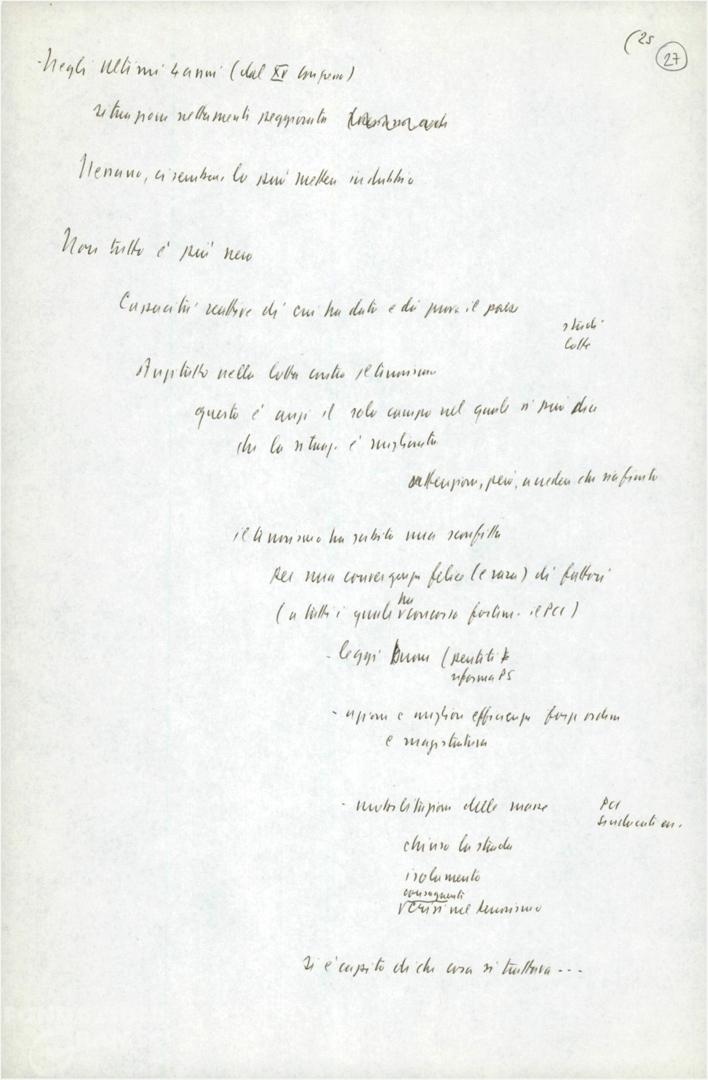 (25
27
- Negli ultimi 4 anni (dal XV Congresso)
situazione nettamente peggiorata
Nessuno, ci sembra, lo può mettere in dubbio
Non tutto è più nero
Capacità reattive di cui ha dato e dà prova il paese
studi
lotte
Anzitutto nella lotta contro il terrorismo
questo è anzi il solo campo nel quale si può dire
che la situaz. è migliorata
attenzione, però, a credere che sia finito
il terrorismo ha subito una sconfitta
per una convergenza felice (e rara) di fattori
(a tutti i quali ha concorso fortem. il PCI)
- leggi buone (pentiti
riforma PS
- azione e migliore efficienza forze ordine
e magistratura
- mobilitazione delle masse PCI
sindacati
chiuso la strada
isolamento
conseguenti
crisi nel terrorismo
si è capito di che cosa si trattava ---